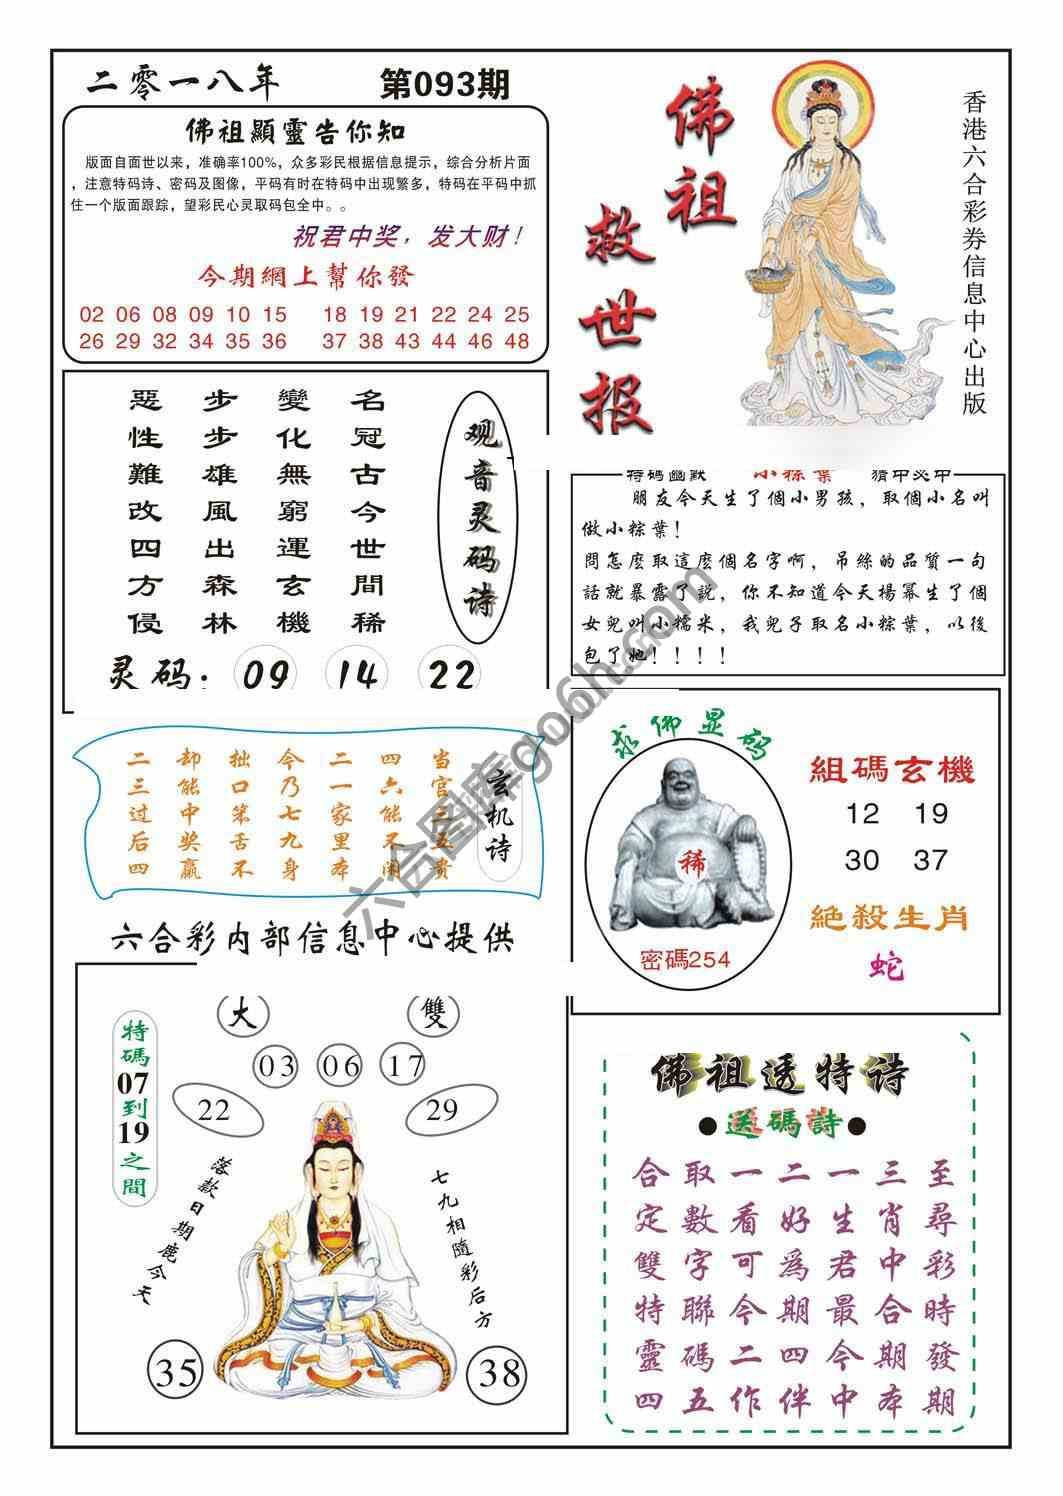 二零一八年
第093期
佛祖顯靈告你知
版面自面世以来，准确率100%，众多彩民根据信息提示，综合分析片面
，注意特码诗、密码及图像，平码有时在特码中出现繁多，特码在平码中抓
住一个版面跟踪，望彩民心灵取码包全中。。
祝君中奖，发大财！
今期網上幫你發
02 06 08 09 10 15 18 19 21 22 24 25
26 29 32 34 35 36 37 38 43 44 46 48
佛祖救世报
香港六合彩券信息中心出版
观音灵码诗
名冠古今世間稀
變化無窮運玄機
步步雄風出森林
惡性難改四方侵
灵码：09 14 22
特碼幽默 小粽葉 猜中灾中
朋友今天生了個小男孩，取個小名叫
做小粽葉！
問怎麽取這麽個名字啊，吊絲的品質一句
話就暴露了說，你不知道今天楊冪生了個
女兒叫小糯米，我兒子取名小粽葉，以後
包了她！！！！
玄机诗
当官三五贵
四六能不闲
二一家里本
今乃七九身
拙口笨舌不
却能中奖赢
二三过后四
求佛显码
稀
密碼254
組碼玄機
12 19
30 37
絕殺生肖
蛇
六合彩内部信息中心提供
特碼07到19之間
大 雙
03 06 17
22 29
落款日期鹿今天
七九相隨彩后方
35 38
佛祖透特诗
●送碼詩●
至尋彩時發期
三肖中合期本
一生君最今中
二好為期四伴
一看可今二作
取數字聯碼五
合定雙特靈四
六合图库go6h.com